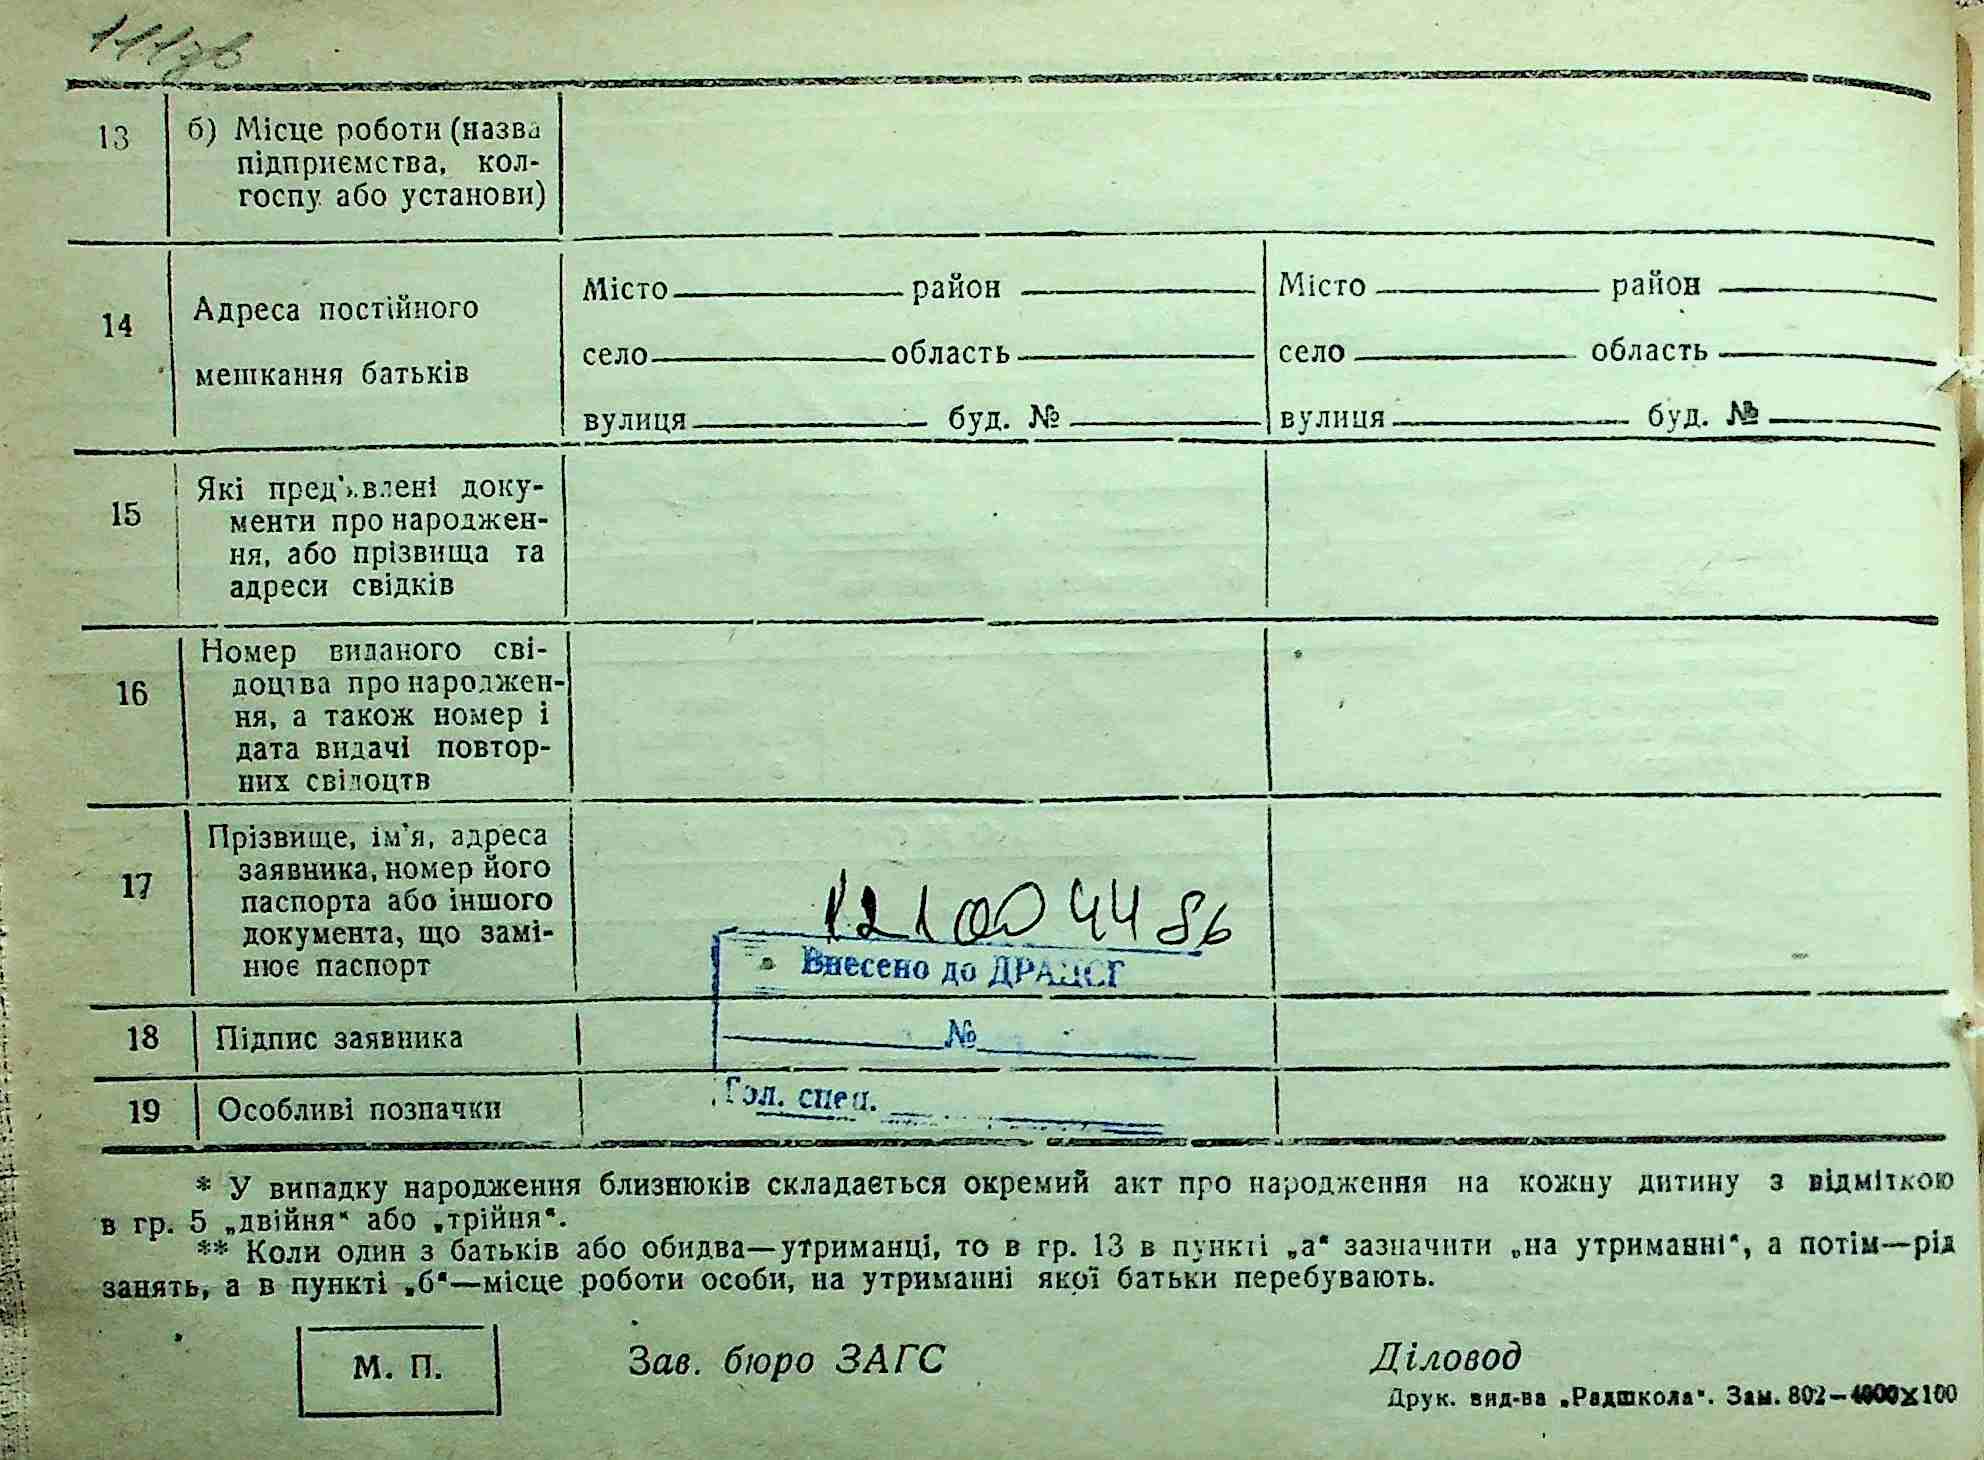 111зв
13
б) Місце роботи (назва
підприємства, кол-
госпу або установи)
14
Адреса постійного
мешкання батьків
Місто район
село область
вулиця буд. №
Місто район
село область
вулиця буд. №
15
Які пред'явлені доку-
менти про народжен-
ня, або прізвища та
адреси свідків
16
Номер виданого сві-
доцтва про народжен-
ня, а також номер і
дата видачі повтор-
них свідоцтв
17
Прізвище, ім'я, адреса
заявника, номер його
паспорта або іншого
документа, що замі-
нює паспорт
1210044 86
Внесено до ДРАЦСГ
№
Гол. спец.
18
Підпис заявника
19
Особливі позначки
* У випадку народження близнюків складається окремий акт про народження на кожну дитину з відміткою
в гр. 5 „двійня“ або „трійня“.
** Коли один з батьків або обидва—утриманці, то в гр. 13 в пункті „а“ зазначити „на утриманні“, а потім—рід
занять, а в пункті „б“—місце роботи особи, на утриманні якої батьки перебувають.
М. П.
Зав. бюро ЗАГС
Діловод
Друк. вид-ва „Радшкола“. Зам. 802—4000X100